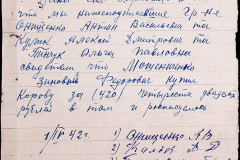 что мы нижеподписавшие Гр-не
Онищенко Антон Васильевич та
Куць Алексей Дмитрович та
Тинчук Ольга Павловна
свидетели что Мошенченко
Зиновий Федорович купил
Корову за (420) Четыреста двадцать
рублей в том и росписуемся
1/IV 42 г. 1) Онищенко А В
2) А. Д
3)